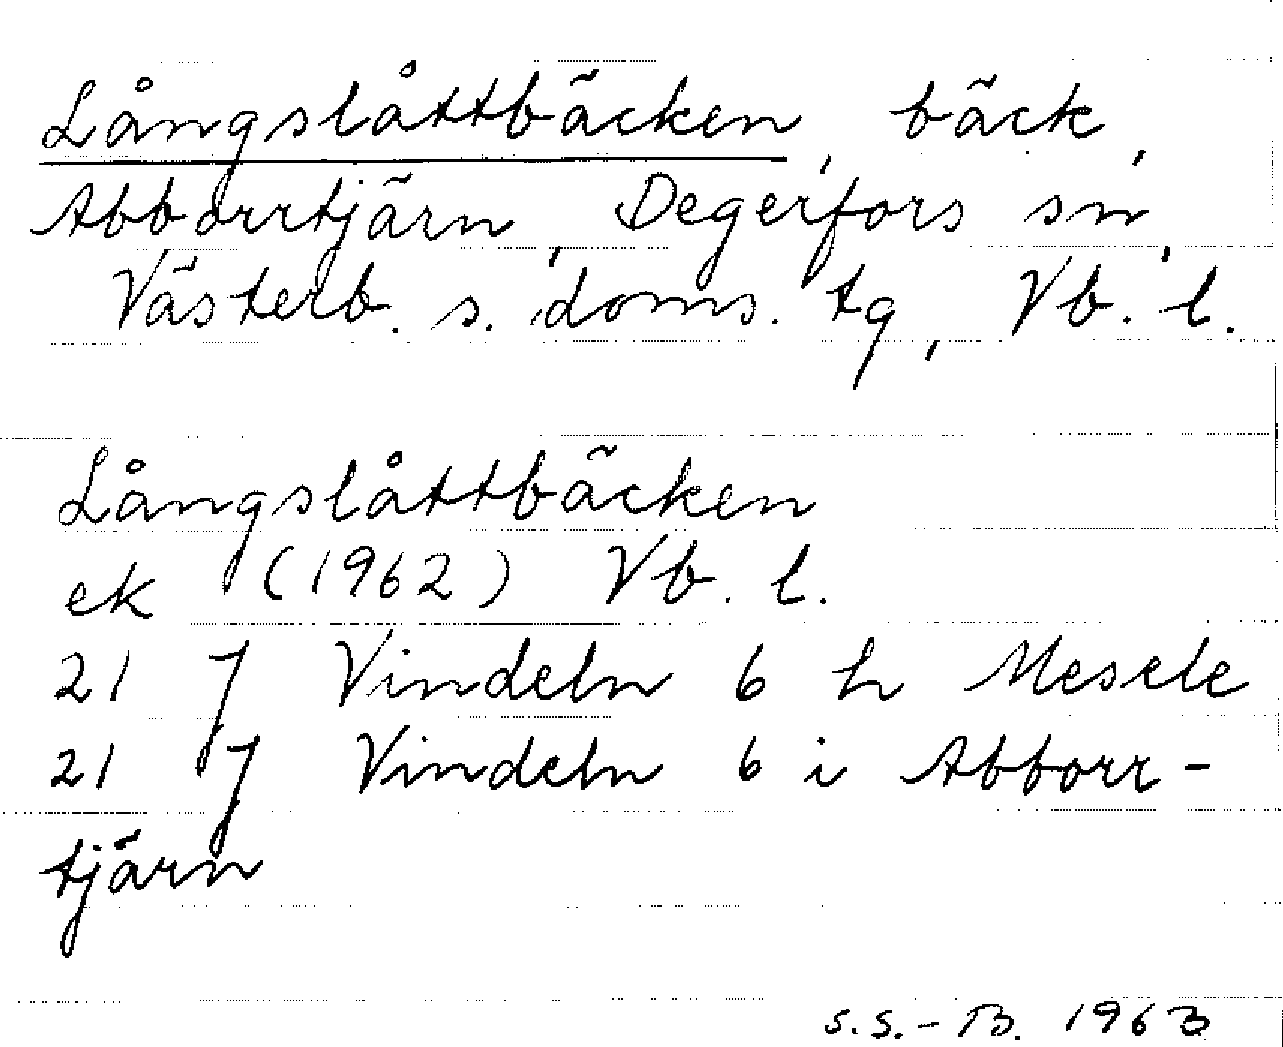 Långslåttbäcken, bäck,
Abborrtjärn, Degerfors sn,
Västerb. s. doms. tg, Vb. l.
Långslåttbäcken
ek (1962) Vb. l.
21 J Vindeln 6 h Mesele
21 J Vindeln 6 i Abborr-
tjärn
S.S.-B. 1963